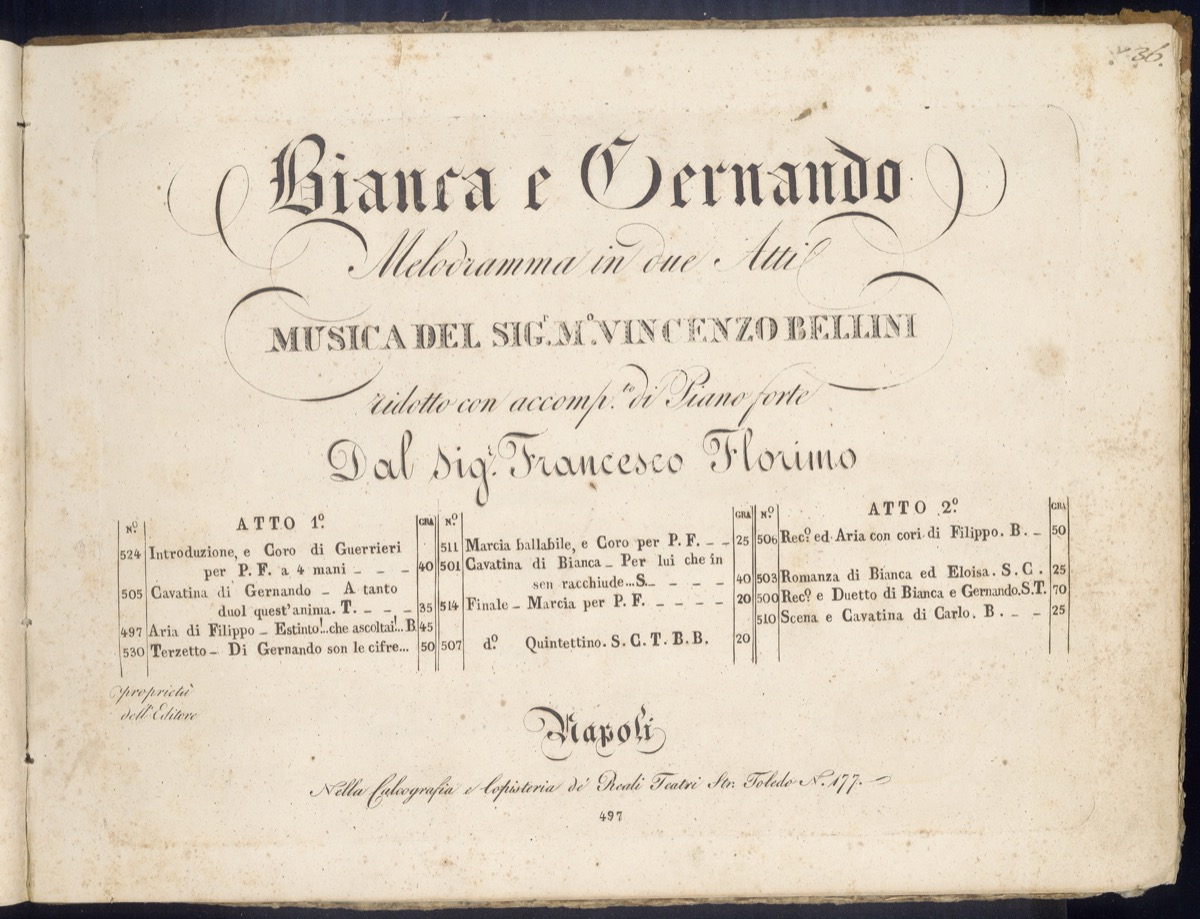 36.
Bianca e Gernando
Melodramma in due Atti
MUSICA DEL SIG.r M.o VINCENZO BELLINI
ridotto con accomp.to di Piano forte
Dal sig.r Francesco Florimo
N.o ATTO 1.o GRA
524 Introduzione, e Coro di Guerrieri
per P. F. a 4 mani _ _ _ 40
505 Cavatina di Gernando _ A tanto
duol quest'anima. T. _ _ _ 35
497 Aria di Filippo _ Estinto!...che ascoltai!... B. 45
530 Terzetto _ Di Gernando son le cifre... 50
N.o GRA
511 Marcia ballabile, e Coro per P. F. _ _ 25
501 Cavatina di Bianca _ Per lui che in
sen racchiude...S. _ _ _ _ 40
514 Finale _ Marcia per P. F. _ _ _ _ 20
507 d.o Quintettino. S. C. T. B. B. 20
N.o ATTO 2.o GRA
506 Rec.o ed Aria con cori di Filippo. B. _ 50
503 Romanza di Bianca ed Eloisa. S. C. 25
500 Rec.o e Duetto di Bianca e Gernando. S. T. 70
510 Scena e Cavatina di Carlo. B. _ _ 25
proprietà
dell'Editore
Napoli
Nella Calcografia e Copisteria de' Reali Teatri Str. Toledo N. 177.
497